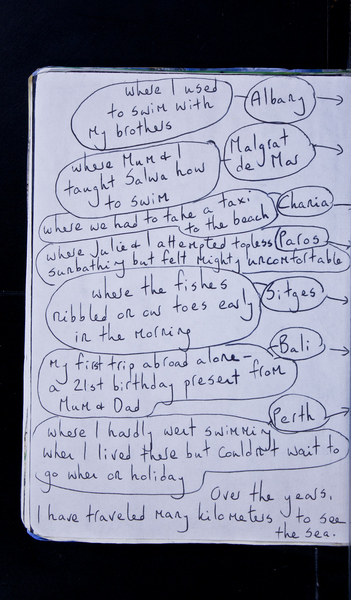 where I used
to swim with
my brothers
Albany
where Mum & I
taught Salwa how
to swim
Malgrat
de Mar
where we had to take a taxi
to the beach
Chania
where Julie & I attempted topless
sunbathing but felt mighty uncomfortable
Paros
where the fishes
nibbled on our toes early
in the morning
Sitges
My first trip abroad alone -
a 21st birthday present from
Mum & Dad
Bali
where I hardly went swimming
when I lived there but couldn't wait to
go when on holiday
Perth
Over the years,
I have traveled many kilometers to see
the sea.